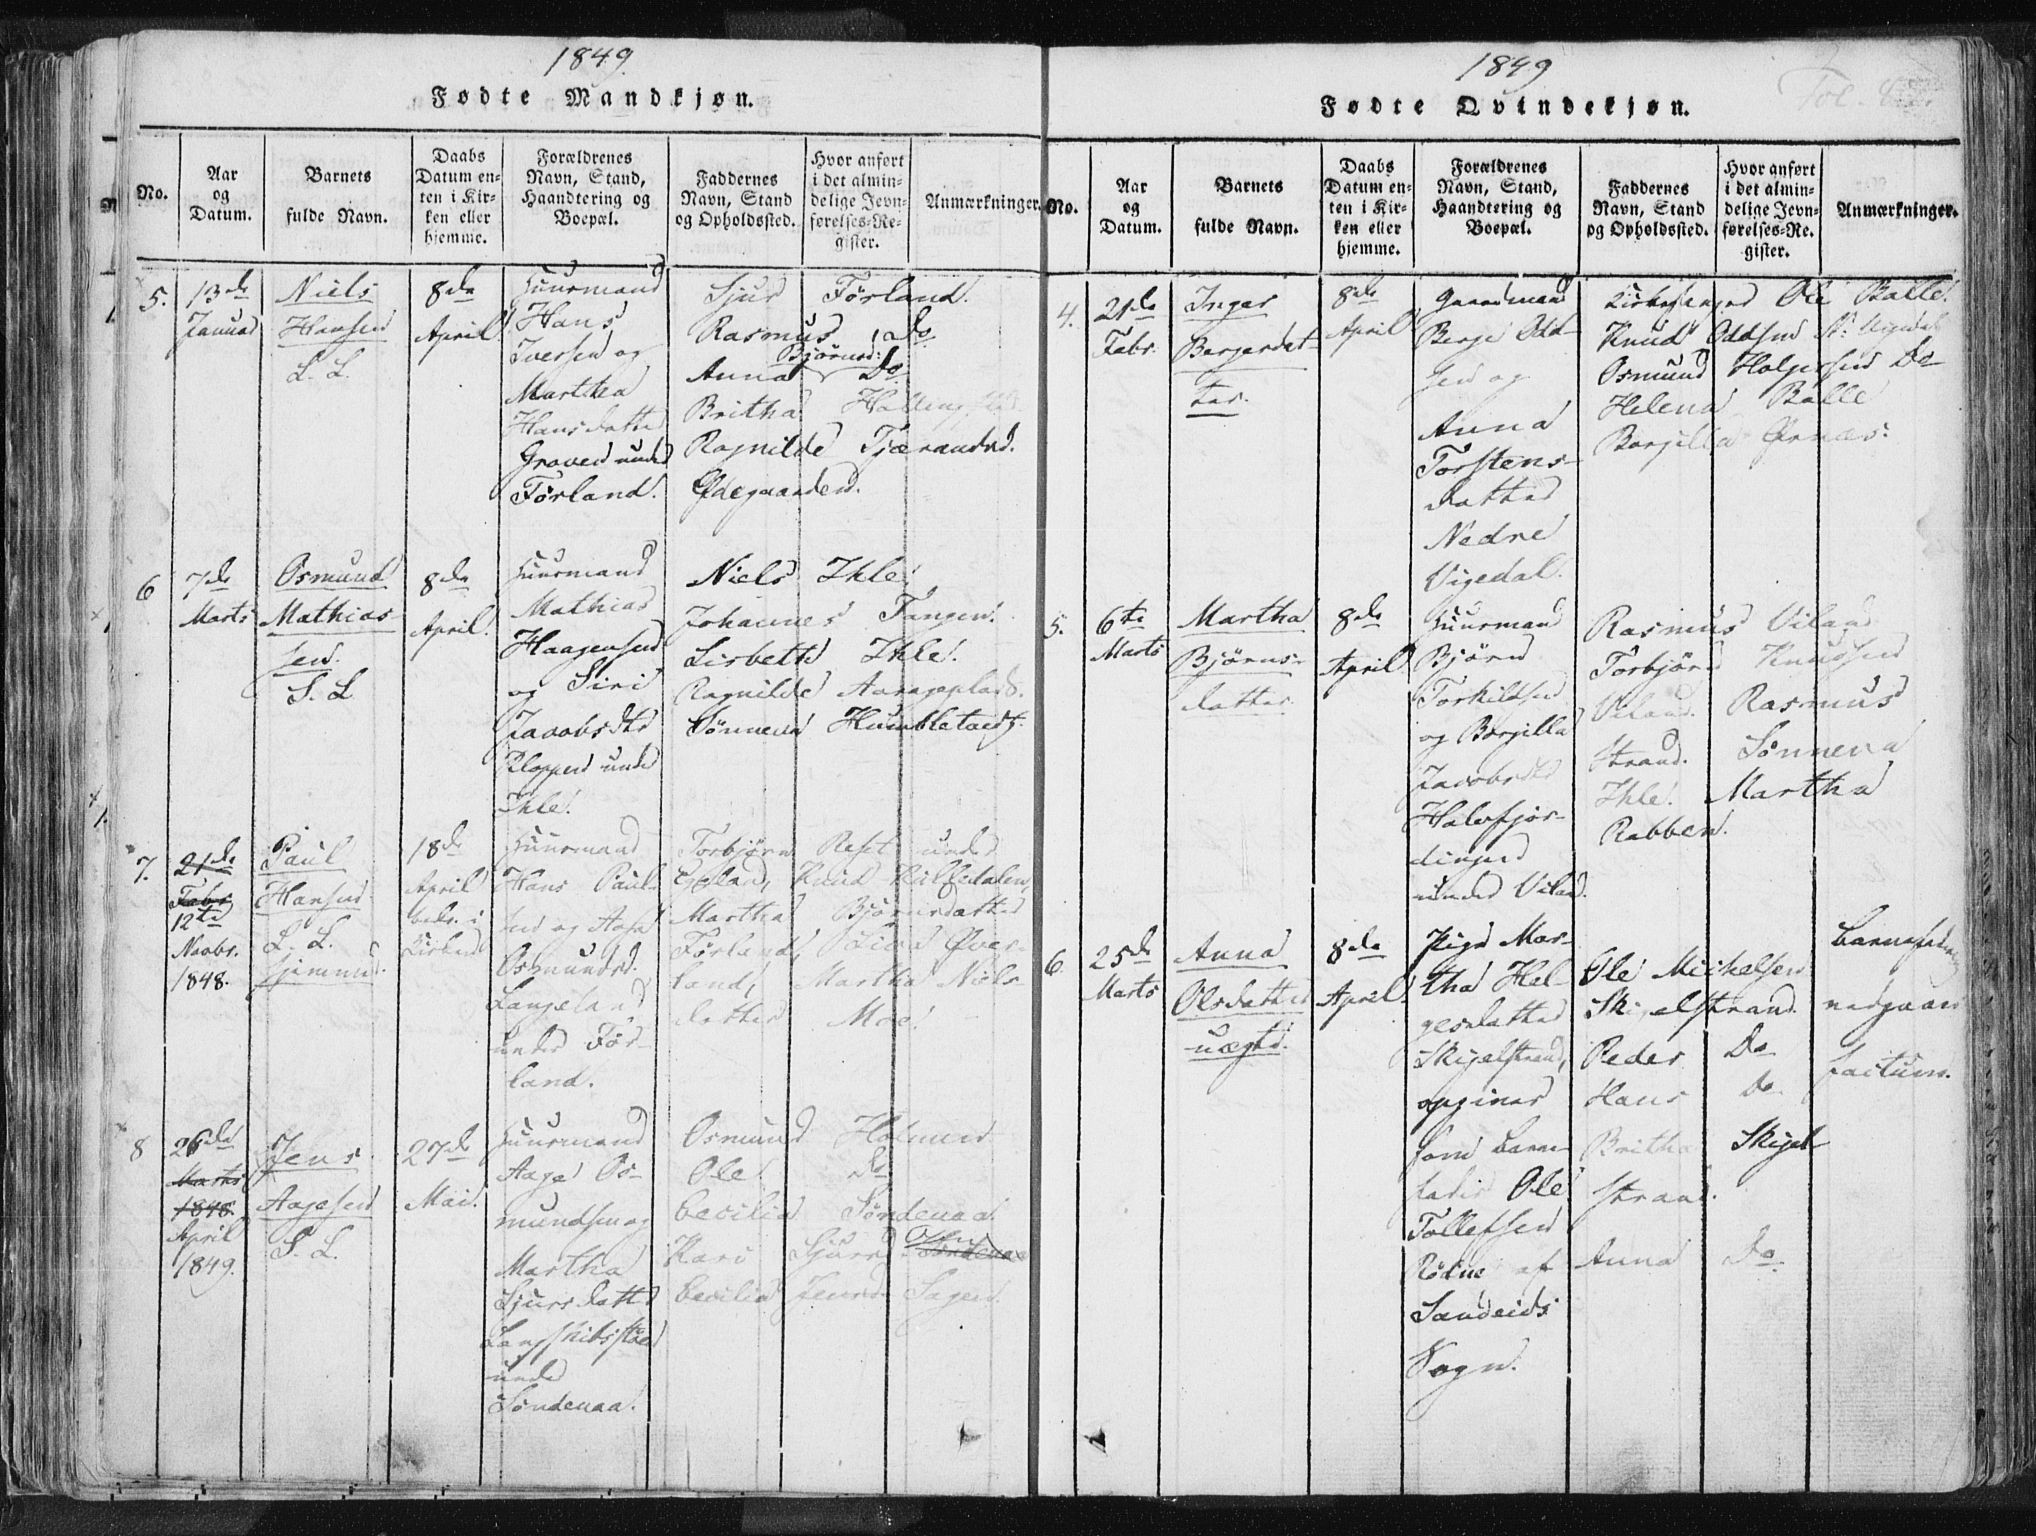 1849
Fødte Mandkjøn.
No.
Aar
og
Datum.
Barnets
fulde Navn.
Daabs
Datum en-
ten i Kir-
ken eller
hjemme.
Forældrenes
Navn, Stand,
Haandtering og
Boepæl.
Faddernes
Navn, Stand
og Opholdssted.
Hvor anført
i det almin-
delige Jevn-
førelses-Re-
gister.
Anmærkninger.
5.
13de
Januar
Niels
Hansen
L. L.
8de
April
Huusmand
Hans
Iversen og
Marthea
Hansdatter
Graven under
Førland.
Sjur Førland.
Rasmus Do
Anna Bjørnsd: Do
Britha
Ragnilde Tjærandsd.
Ødegaarden.
6
7de
Marts
Osmund
Mathias-
sen.
S. L
8de
April.
Huusmand
Mathias
Haagensen
og Siri
Jacobsdtr
Kloppen under
Ihle.
Niels Ihle.
Johannes Tangen.
Lisbeth Ihle.
Ragnilde Aarageplads.
Sønneva Humblestadt.
7.
21de
Febr
12te
Novbr.
1848.
Paul
Hansen
L. L.
hjemme
18de
April
bekr. i
Kirken
Huusmand
Hans Paul-
sen og Aasa
Osmundsd.
Langeland
under Før-
land.
Torbjørn Reset under
Espeland, Knud Killedalen,
Martha Bjørnsdatter
Førland, Lisa Øver-
land, Martha Niels-
datter Moe.
8
26de
Marts
1848.
April
1849.
Jens
Aagesen
S. L.
27de
Mai.
Huusmand
Aage Os-
mundsen og
Martha
Sjursdatter
Langskibstøed
under
Søndenaa.
Osmund Holmen
Ole do
Cecilia Søndenaa
Kari Sjursd Søndenaa
Cecilia Jensd. Sagen.
1849
Fol.
Fødte Qvindekjøn.
No.
Aar
og
Datum.
Barnets
fulde Navn.
Daabs
Datum en-
ten i Kir-
ken eller
hjemme.
Forældrenes
Navn, Stand,
Haandtering og
Boepæl.
Faddernes
Navn, Stand
og Opholdssted.
Hvor anført
i det almin-
delige Jevn-
førelses-Re-
gister.
Anmærkninger.
4.
21de
Febr:
Inger
Bergesdat-
ter.
8de
April
Gaardmand
Berge Odd-
sen og
Anna
Torstens-
datter
Nedre
Vigedal.
Kirkesanger Ole Balle.
Knud Oddsen N: Vigedal
Osmund Holgersen Do
Helena Balle
Borgilla Ørnæs.
5.
6te
Marts
Martha
Bjørns-
datter
8de
April
Huusmand
Bjørn
Torkildsen
og Borgilla
Jacobsdtr
Halvfjor-
dingen
under Viland.
Rasmus Viland
Torbjørn Knudsen
Viland. Rasmus
Strand. Sønneva
Ihle. Martha
Rabben.
6.
25de
Marts
Anna
Olsdatter
uægte.
8de
April
Pige Mar-
tha Hel-
gesdatter
Skigelstrand,
opgiver
som Barne-
fader Ole
Tollefsen
Rødne af
Sandeids
Sogn.
Ole Michelsen
Skigelstrand
Peder Do
Hans do
Britha Skigel-
strand.
Anna Do
Barnefaderen
vedgaaer
factum.